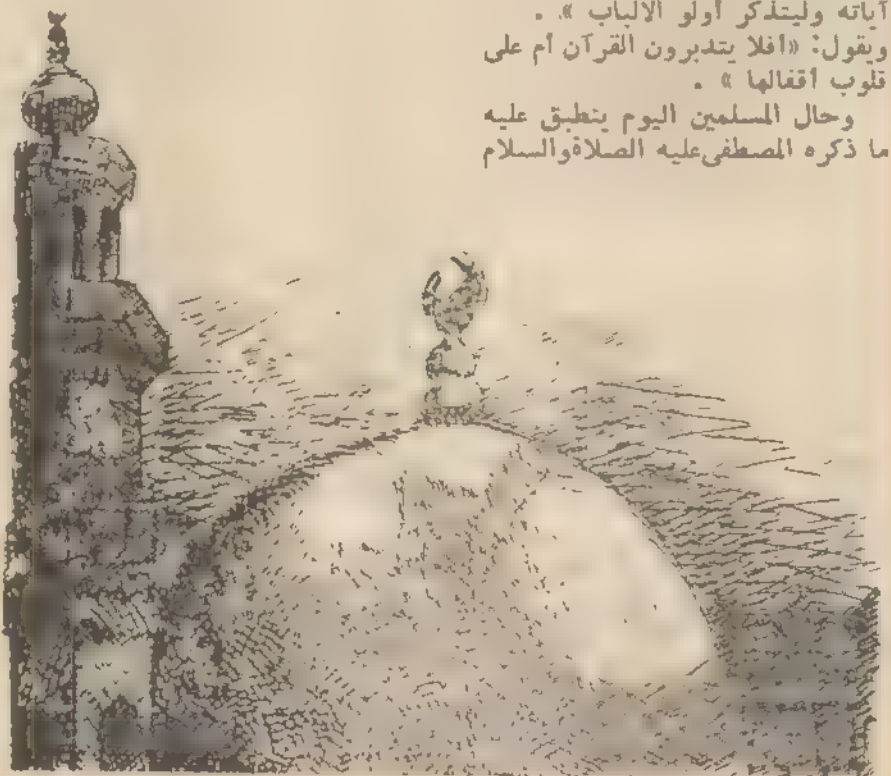 آياته وليتذكر أولو الالباب » .
ويقول: «أفلا يتدبرون القرآن أم على
قلوب أقفالها » .
وحال المسلمين اليوم ينطبق عليه
ما ذكره المصطفى عليه الصلاة والسلام